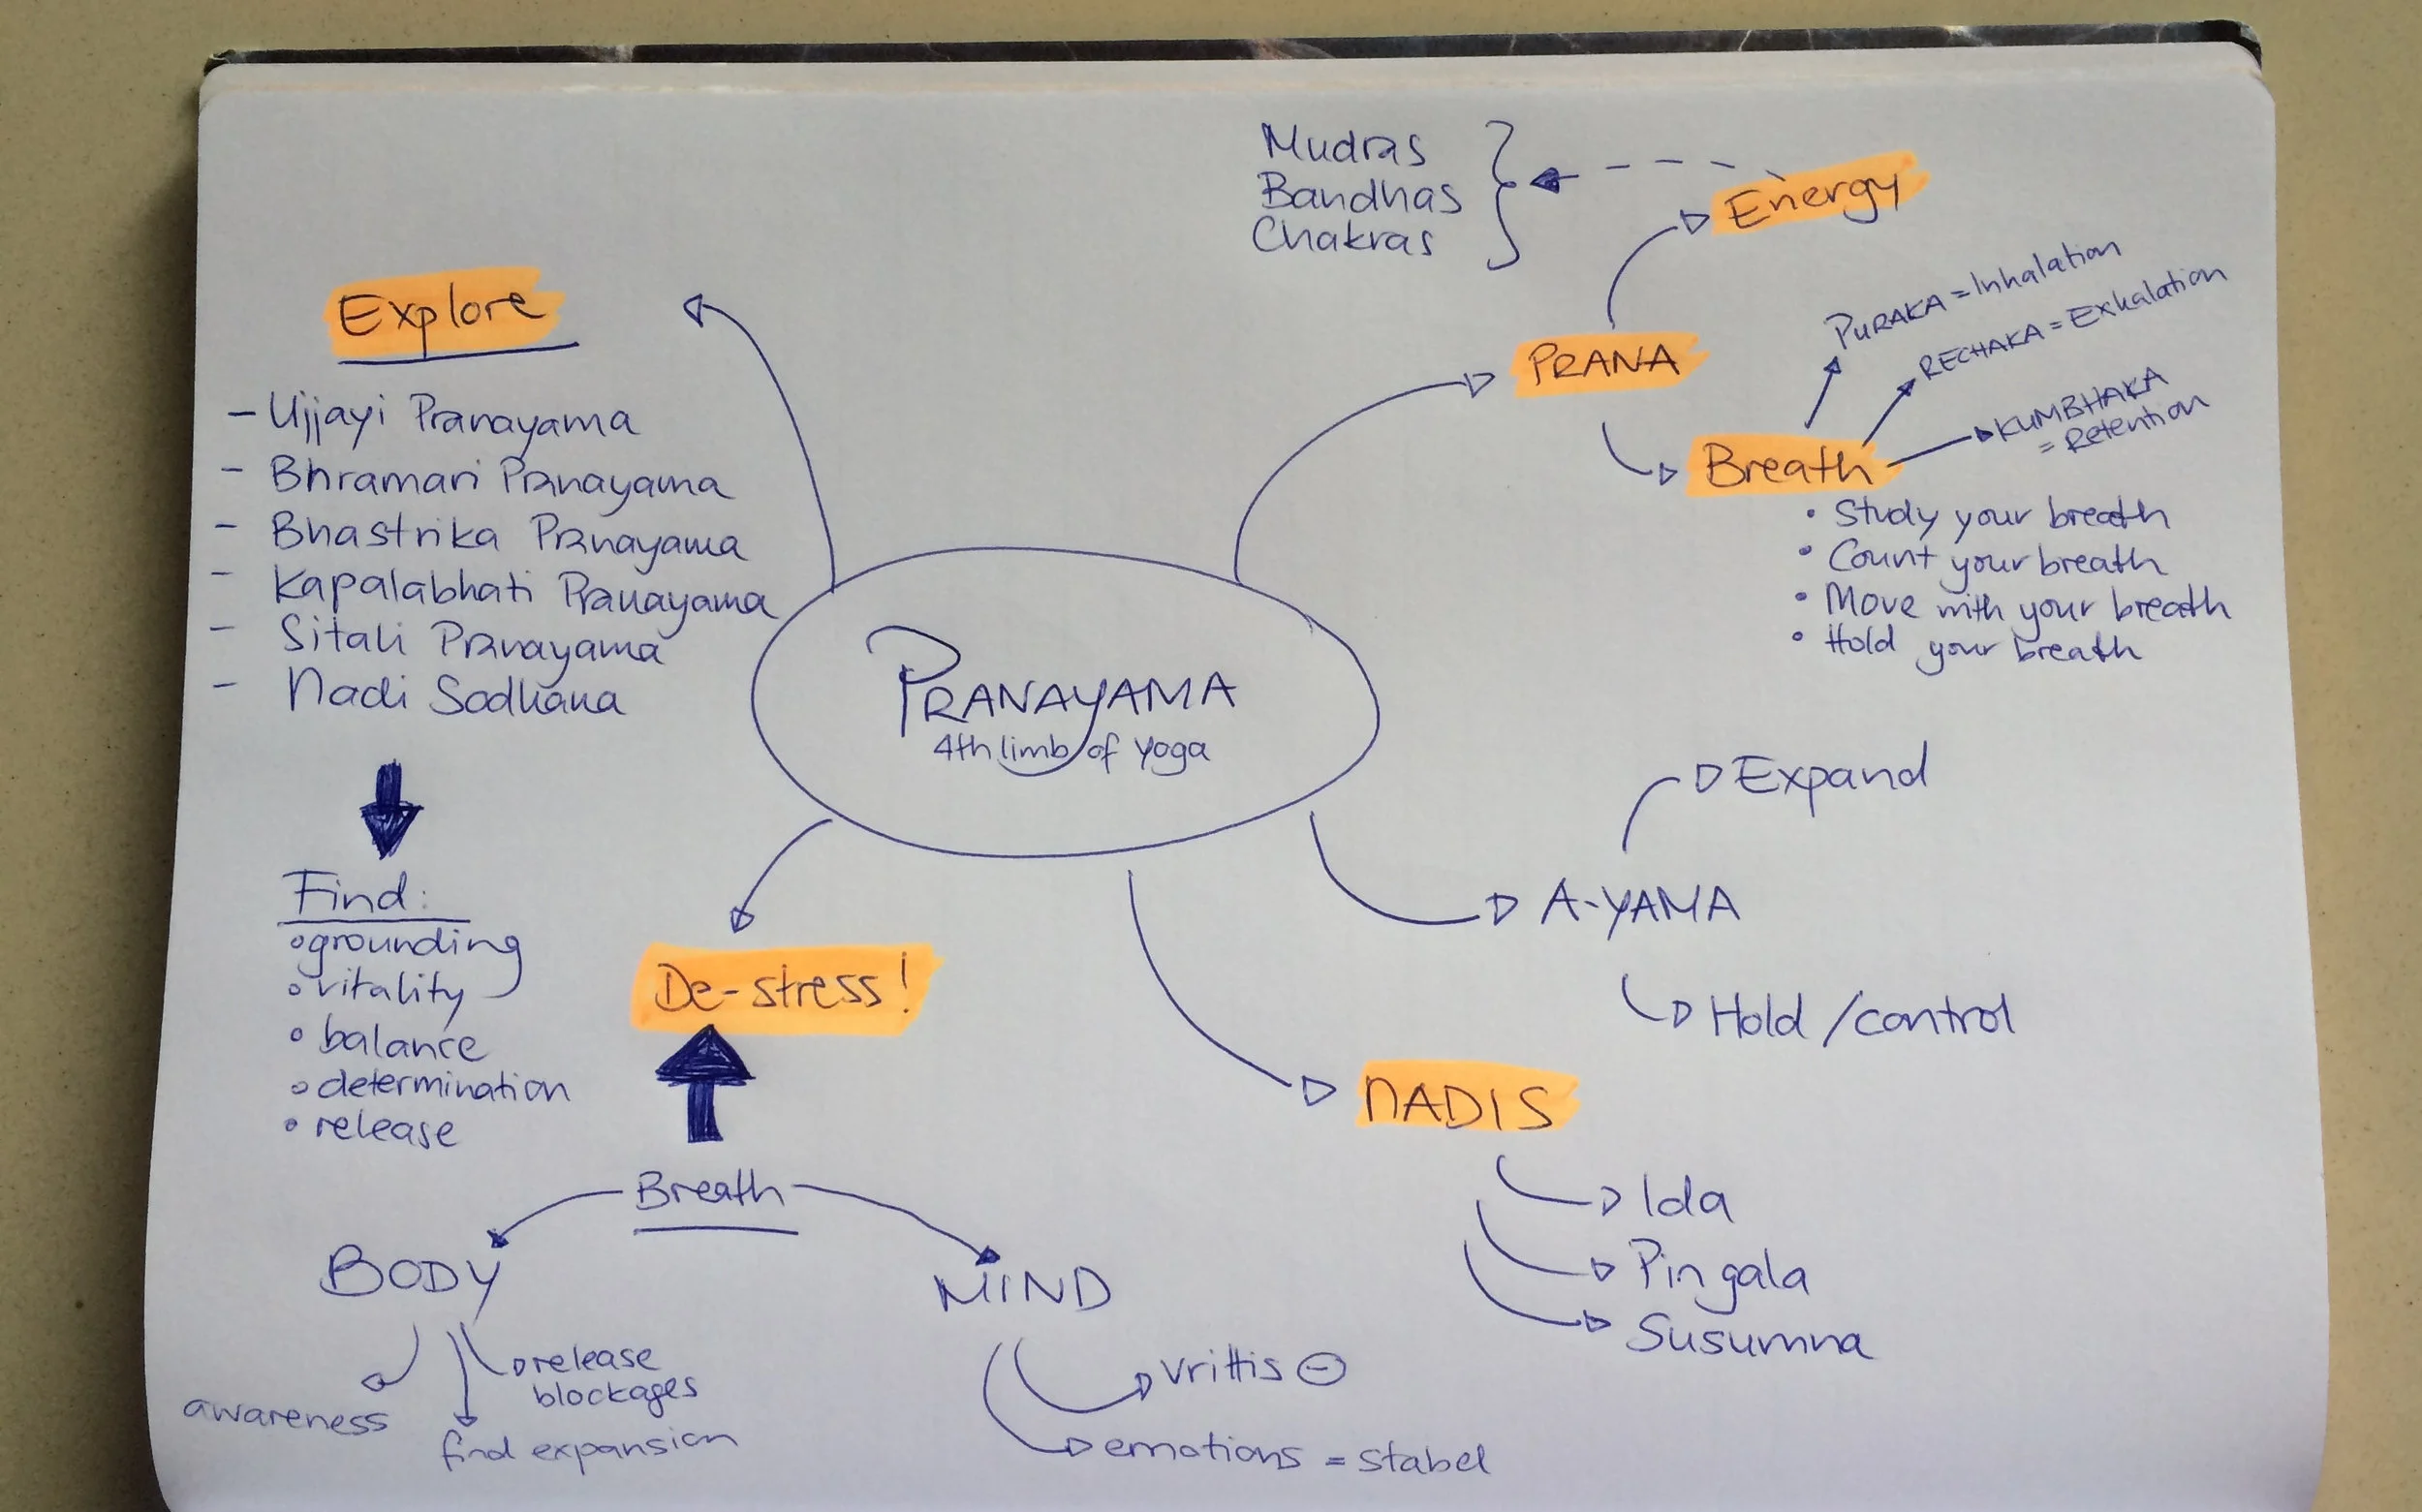 Mudras
Bandhas
Chakras
Energy
PRANA
PURAKA = Inhalation
RECHAKA = Exhalation
KUMBHAKA
= Retention
Breath
• Study your breath
• Count your breath
• Move with your breath
• Hold your breath
Explore
- Ujjayi Pranayama
- Bhramari Pranayama
- Bhastrika Pranayama
- Kapalabhati Pranayama
- Sitali Pranayama
- Nadi Sodhana
PRANAYAMA
4th limb of yoga
Expand
A-YAMA
Hold / control
Find:
• grounding
• vitality
• balance
• determination
• release
De-stress!
NADIS
Ida
Pingala
Susumna
Breath
BODY
MIND
awareness
find expansion
release
blockages
vrittis ⊖
emotions = stabel